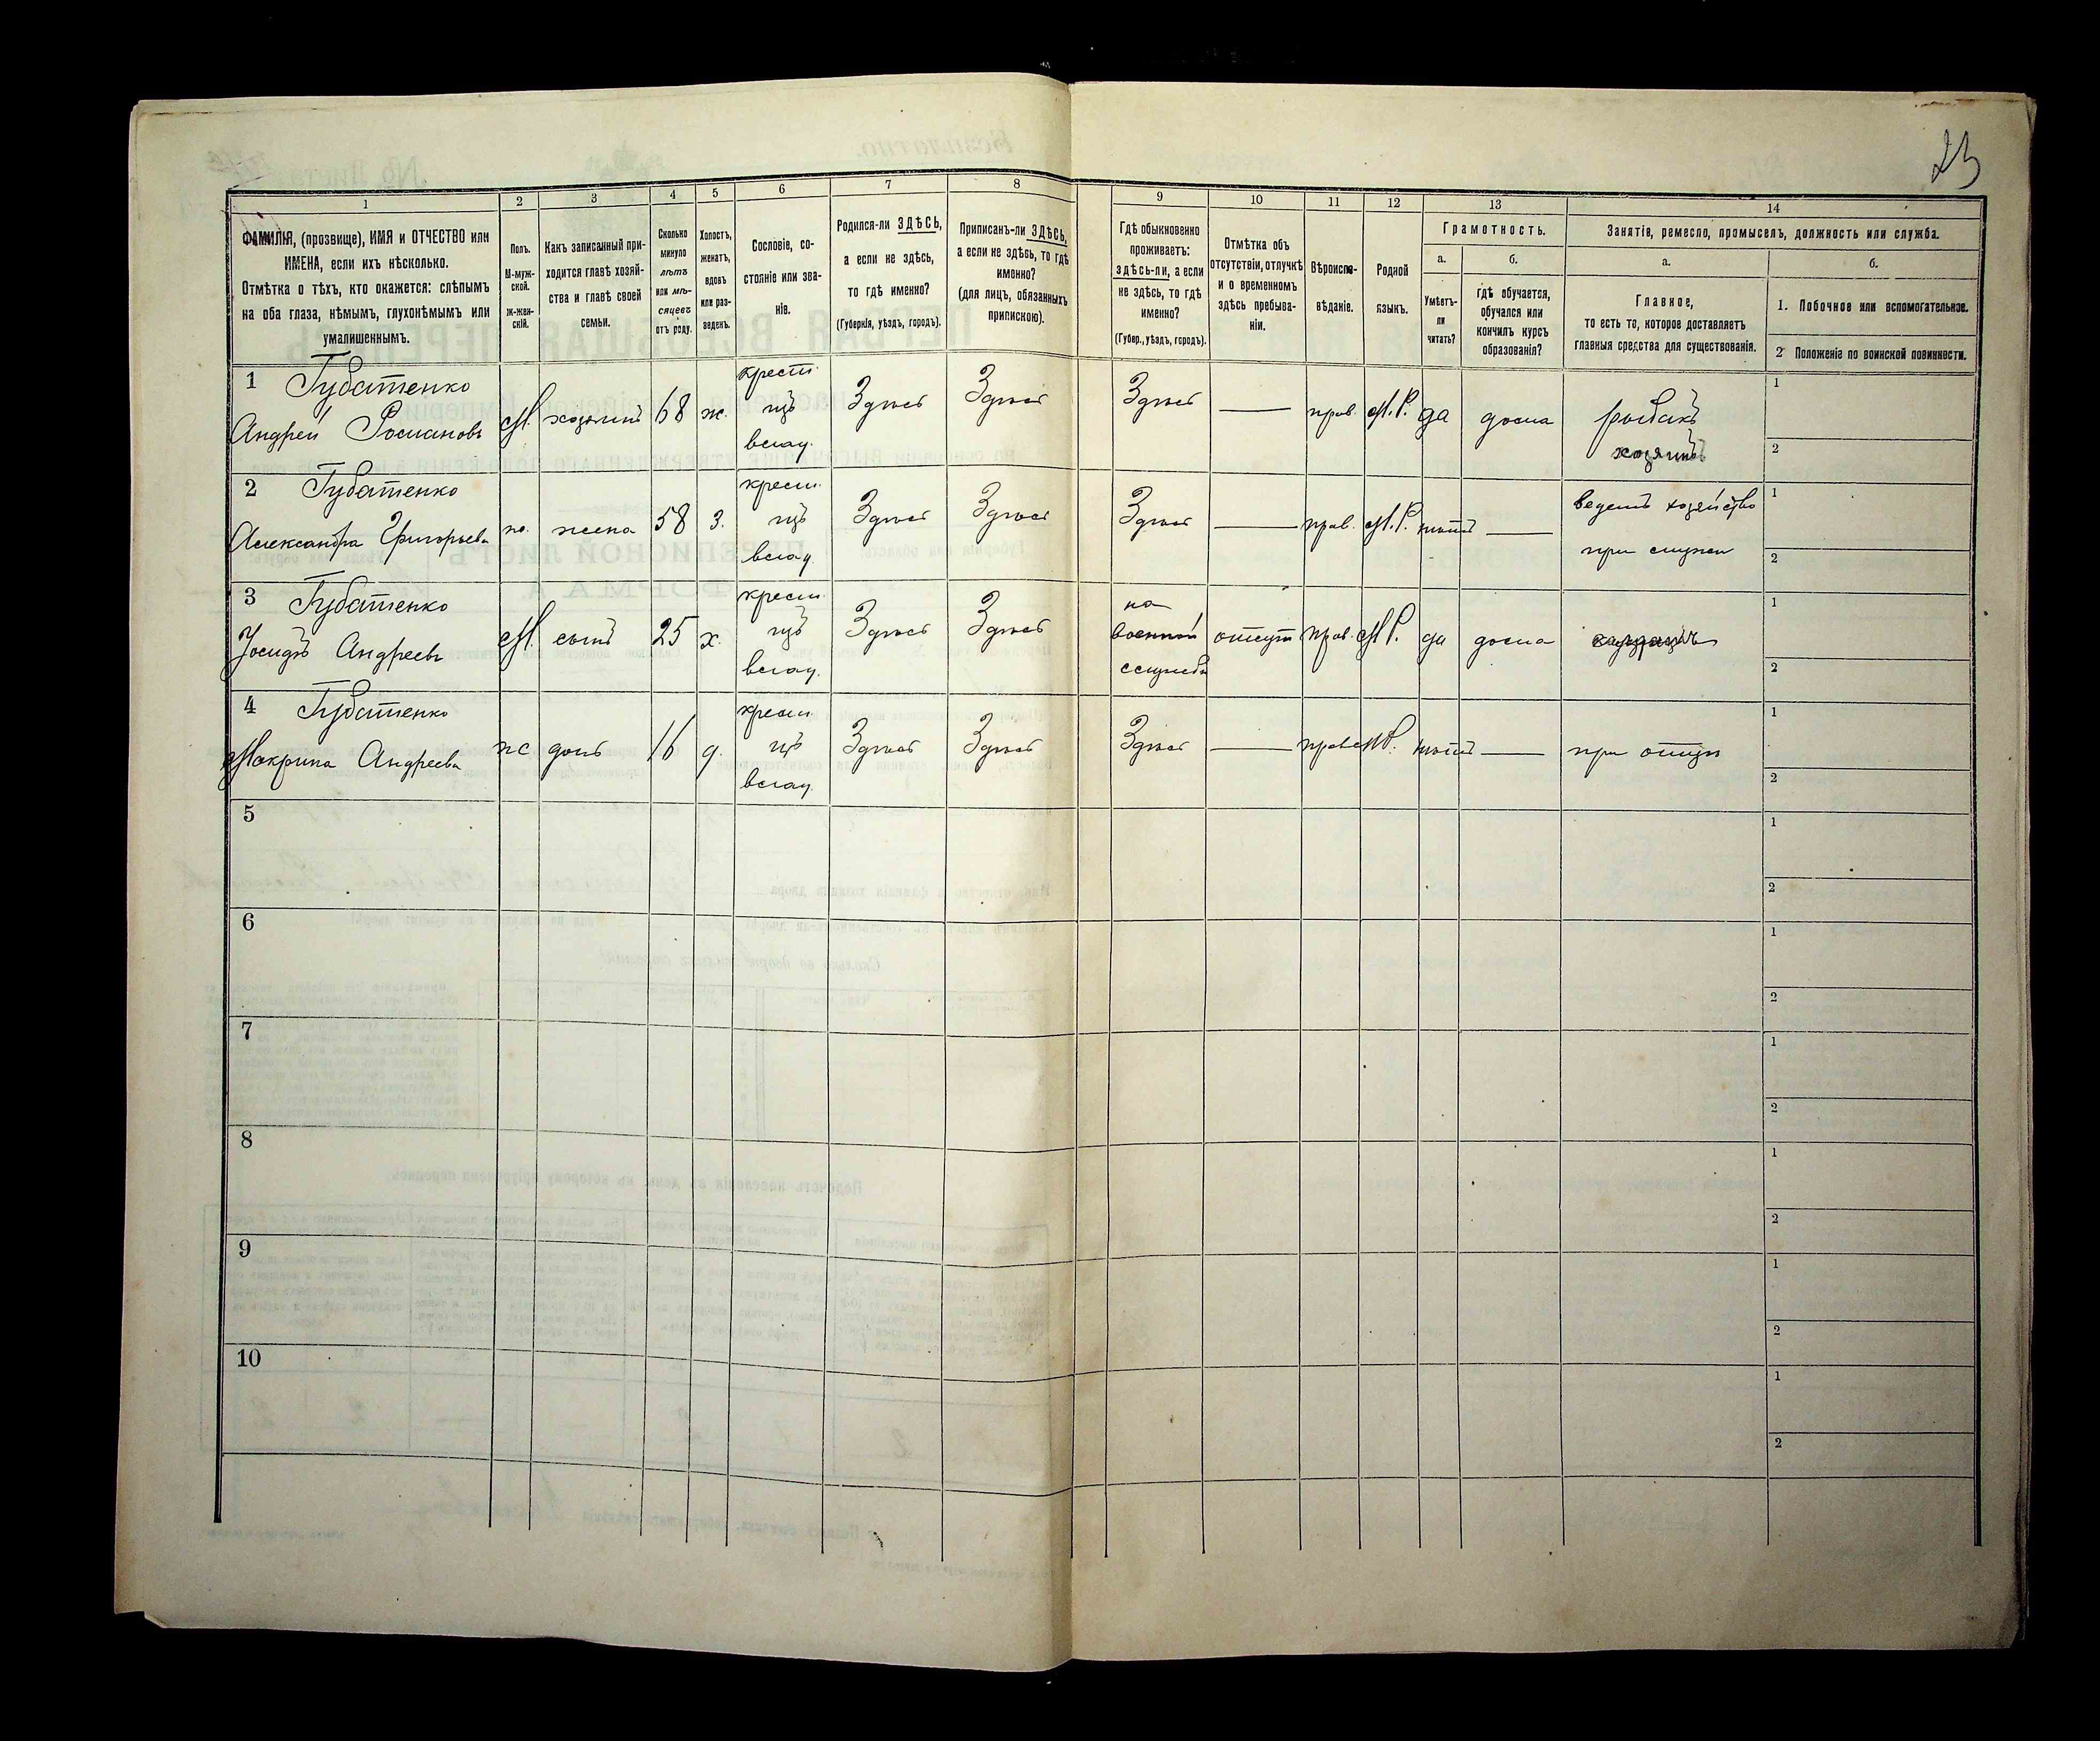 23
1
2
3
4
5
6
7
8
9
10
11
12
13
14
ФАМИЛІЯ, (прозвище), ИМЯ и ОТЧЕСТВО или
ИМЕНА, если ихъ нѣсколько.
Отмѣтка о тѣхъ, кто окажется: слѣпымъ
на оба глаза, нѣмымъ, глухонѣмымъ или
умалишеннымъ.
Полъ.
М-муж-
ской.
Ж-жен-
скій.
Какъ записанный при-
ходится главѣ хозяй-
ства и главѣ своей
семьи.
Сколько
минуло
лѣтъ
или мѣ-
сяцевъ
отъ роду.
Холостъ,
женатъ,
вдовъ
или раз-
веденъ.
Сословіе, со-
стояніе или зва-
ніе.
Родился-ли ЗДѢСЬ,
а если не здѣсь,
то гдѣ именно?
(Губернія, уѣздъ, городъ).
Приписанъ-ли ЗДѢСЬ,
а если не здѣсь, то гдѣ
именно?
(для лицъ, обязанныхъ
припискою).
Гдѣ обыкновенно
проживаетъ:
здѣсь-ли, а если
не здѣсь, то гдѣ
именно?
(Губер., уѣздъ, городъ).
Отмѣтка объ
отсутствіи, отлучкѣ
и о временномъ
здѣсь пребыва-
ніи.
Вѣроиспо-
вѣданіе.
Родной
языкъ.
Грамотность.
а.
Умѣетъ-
ли
читать?
б.
гдѣ обучается,
обучался или
кончилъ курсъ
образованія?
Занятіе, ремесло, промыселъ, должность или служба.
а.
Главное,
то есть то, которое доставляетъ
главныя средства для существованія.
б.
1. Побочное или вспомогательное.
2 Положеніе по воинской повинности.
1 Губатенко
Андрей Романовъ М. хозяинъ 68 ж. крест. изъ влад. Здѣсь Здѣсь Здѣсь — прав. М.Р. да дома рыбакъ
хозяинъ
1
2
2 Губатенко
Александра Григорьева ж. жена 58 з. крест. изъ влад. Здѣсь Здѣсь Здѣсь — прав. М.Р. нѣтъ — ведетъ хозяйство
при мужѣ
1
2
3 Губатенко
Іосифъ Андреевъ М. сынъ 25 х. крест. изъ влад. Здѣсь Здѣсь на военной службѣ отсут прав. М.Р. да дома
1
2
4 Губатенко
Макрина Андреева ж дочь 16 д. крест. изъ влад. Здѣсь Здѣсь Здѣсь — прав М.Р. нѣтъ — при отцѣ
1
2
5
1
2
6
1
2
7
1
2
8
1
2
9
1
2
10
1
2